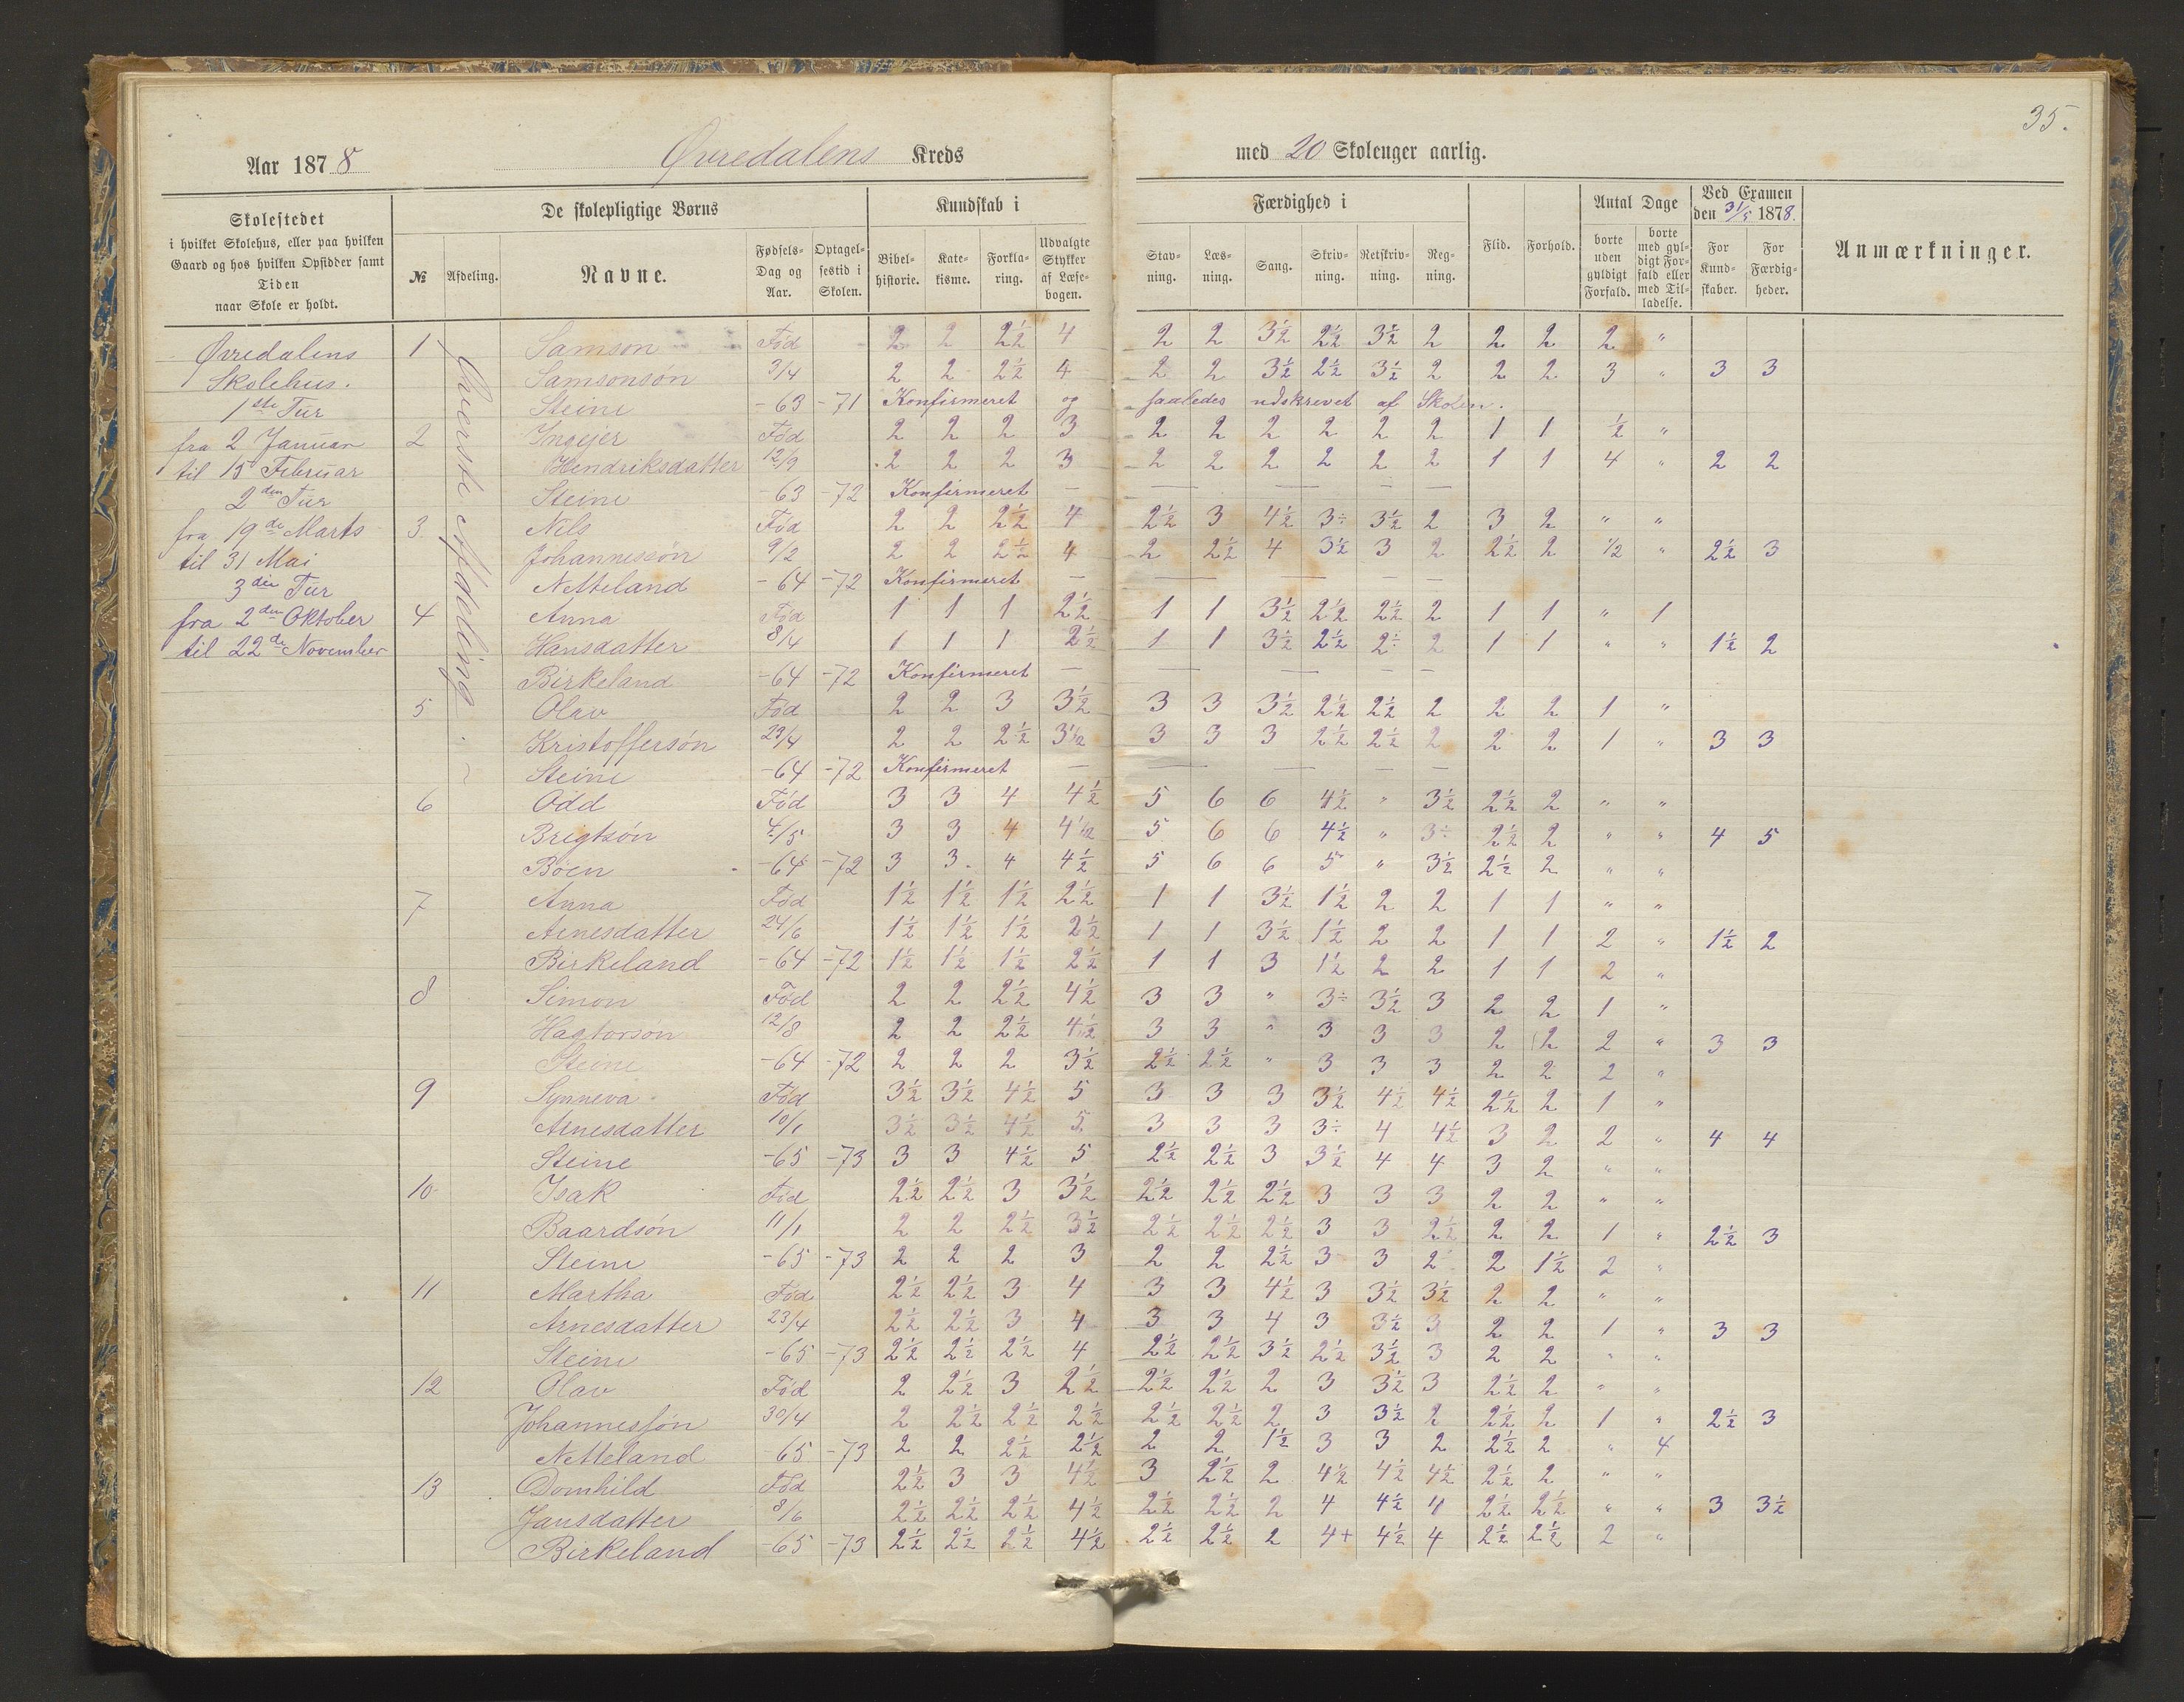 35.
Aar 1878 Øvredalens Kreds med 20 Skoleuger aarlig.
Skolestedet i hvilket Skolehus, eller paa hvilken Gaard og hos hvilken Opsidder samt Tiden naar Skole er holdt.
De skolepligtige Børns
№ Afdeling. Navne. Fødsels-Dag og Aar. Optagelsestid i Skolen.
Kundskab i
Bibelhistorie. Katekisme. Forklaring. Udvalgte Stykker af Læsebogen.
Færdighed i
Stavning. Læsning. Sang. Skrivning. Retskrivning. Regning.
Flid. Forhold.
Antal Dage
borte uden gyldigt Forfald. borte med gyldigt Forfald eller med Tilladelse.
Ved Examen den 31/5 1878.
For Kundskaber. For Færdigheder.
Anmærkninger.
Øvredalens
Skolehus.
1ste Tur
fra 2 Januar
til 15 Februar
2den Tur
fra 19de Marts
til 31 Mai
3die Tur
fra 2den Oktober
til 22de November
Øverste Afdeling.
1 Samson Fød 2 2 2½ 4 2 2 3½ 2½ 3½ 2 2 2 2 "
Samsonsøn 3/4 2 2 2½ 4 2 2 3½ 2½ 3½ 2 2 2 3 " 3 3
Steine -63 -71 Konfirmeret og saaledes udskrevet af Skolen.
2 Ingejer Fød 2 2 2 3 2 2 2 2 2 2 1 1 ½ "
Hendriksdatter 12/9 2 2 2 3 2 2 2 2 2 2 1 1 4 " 2 2
Steine -63 -72 Konfirmeret — — — — —
3. Nils Fød 2 2 2½ 4 2½ 3 4½ 3÷ 3½ 2 3 2 " "
Johannessøn 9/2 2 2 2½ 4 2 2½ 4 3½ 3 2 2½ 2 ½ " 2½ 3
Netteland -64 -72 Konfirmeret — — — — —
4 Anna Fød 1 1 1 2½ 1 1 3½ 2½ 2½ 2 1 1 " 1
Hansdatter 8/4 1 1 1 2½ 1 1 3½ 2½ 2÷ 2 1 1 " " 1½ 2
Birkeland -64 -72 Konfirmeret — — — — —
5 Olav Fød 2 2 3 3½ 3 3 3½ 2½ 2½ 2 2 2 1 "
Kristoffersøn 23/4 2 2 2½ 3½ 3 3 3 2½ 2½ 2 2 2 1 " 3 3
Steine -64 -72 Konfirmeret — — — — —
6 Odd Fød 3 3 4 4½ 5 6 6 4½ " 3½ 2½ 2 " "
Brigtsøn 4/5 3 3 4 4½ 5 6 6 4½ " 3÷ 2½ 2 " " 4 5
Bøen -64 -72 3 3 4 4½ 5 6 6 5 " 3½ 2½ 2 " "
7 Anna Fød 1½ 1½ 1½ 2½ 1 1 3½ 1½ 2 2 1 1 " "
Arnesdatter 24/6 1½ 1½ 1½ 2½ 1 1 3½ 1½ 2 2 1 1 2 " 1½ 2
Birkeland -64 -72 1½ 1½ 1½ 2½ 1 1 3 1½ 2 2 1 1 2 "
8 Simon Fød 2 2 2½ 4½ 3 3 " 3÷ 3½ 3 2 2 1 "
Hagtorsøn 12/8 2 2 2½ 4½ 3 3 " 3 3 3 2 2 2 " 3 3
Steine -64 -72 2 2 2 3½ 2½ 2½ " 3 3 3 2 2 2 "
9 Synneva Fød 3½ 3½ 4½ 5 3 3 3 3½ 4½ 4½ 2½ 2 1 "
Arnesdatter 10/1 3½ 3½ 4½ 5 3 3 3 3÷ 4 4½ 3 2 2 " 4 4
Steine -65 -73 3 3 4½ 5 2½ 2½ 3 3½ 4 4 3 2 " "
10 Isak Fød 2½ 2½ 3 3½ 2½ 2½ 2½ 3 3 3 2 2 " "
Baardsøn 11/1 2 2 2½ 3½ 2½ 2½ 2½ 3 3 2½ 2 2 1 " 2½ 3
Steine -65 -73 2 2 2 3 2 2 2½ 3 3 2 2 1½ 2 "
11 Martha Fød 2½ 2½ 3 4 3 3 4½ 3 3½ 3½ 2 2 " "
Arnesdatter 23/4 2½ 2½ 3 4 3 3 4 3 3½ 3 2 2 1 " 3 3
Steine -65 -73 2½ 2½ 2½ 4 2½ 2½ 3½ 2½ 3½ 3 2 2 " "
12 Olav Fød 2 2½ 3 2½ 2½ 2½ 2 3 3½ 3 2½ 2 " "
Johannessøn 30/4 2 2½ 2½ 2½ 2½ 2½ 2 3 3½ 2 2½ 2 1 " 2½ 3
Netteland -65 -73 2 2 2½ 2½ 2 2 1½ 3 3 2 2½ 2 " 4
13 Domhild Fød 2½ 3 3 4½ 3 2½ 2 4½ 4½ 4½ 2½ 2 " "
Jansdatter 8/6 2½ 2½ 2½ 4½ 2½ 2½ 2 4 4½ 4 2½ 2½ " " 3 3½
Birkeland -65 -73 2½ 2½ 2½ 4½ 2½ 2½ 2 4+ 4½ 4 2½ 2½ 2 "